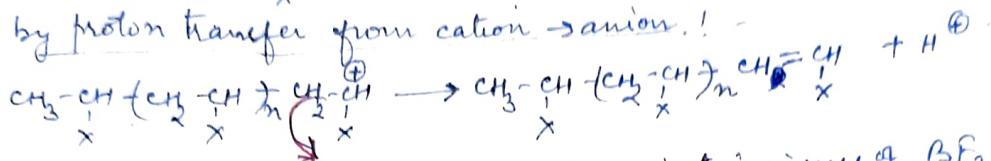 by proton transfer from cation → anion.! -
CH₃-CH-(CH₂-CH-)ₙ CH₂-CH⊕ → CH₃-CH-(CH₂-CH-)ₙ CH=CH + H⊕
X X X X X X
BF₃